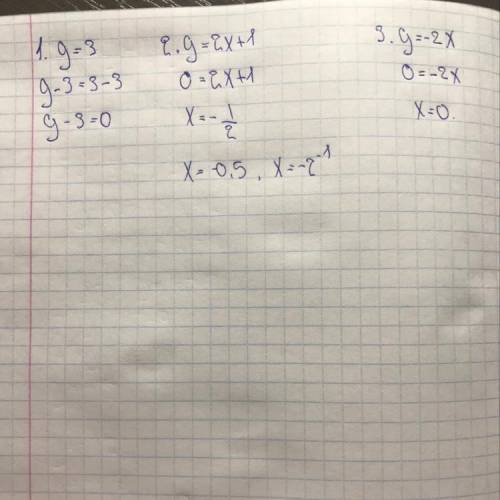 1. y=3
y-3=3-3
y-3=0
2. y=2x+1
0=2x+1
x=-1/2
x=-0.5, x=-2⁻¹
3. y=-2x
0=-2x
x=0.